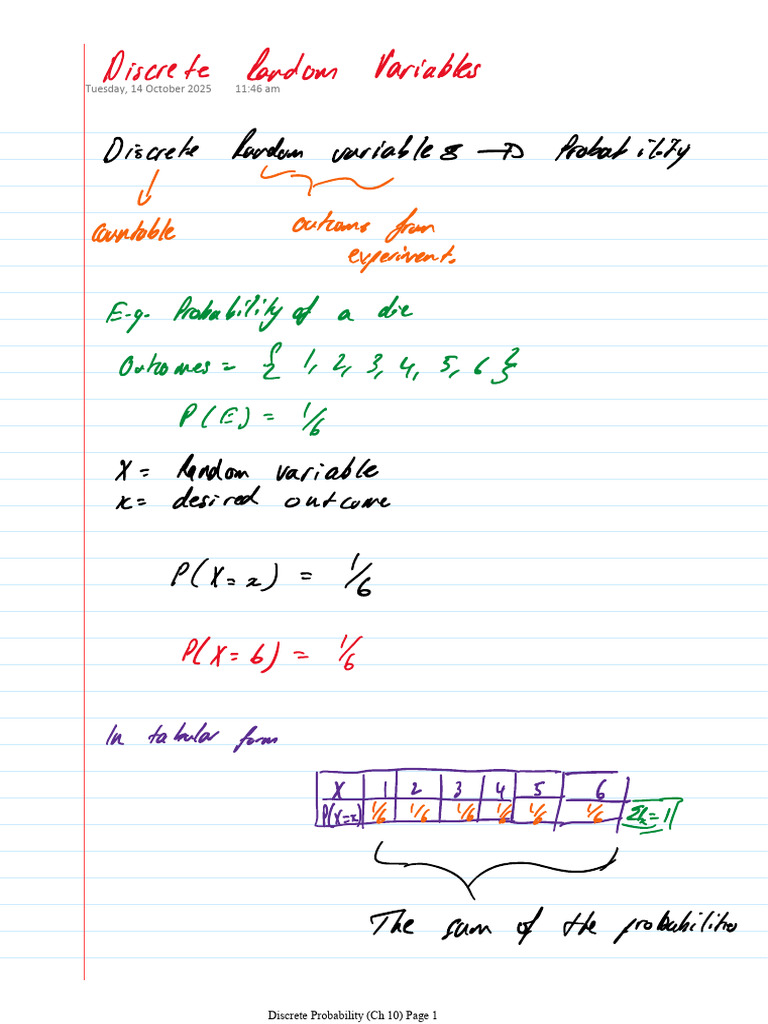 Discrete Random Variables
Tuesday, 14 October 2025 11:46 am
Discrete Random variables → Probability
countable
outcome from
experiment.
E.g. Probability of a die
Outcomes = { 1, 2, 3, 4, 5, 6 }
P(E) = 1/6
X = Random variable
x = desired outcome
P(X=x) = 1/6
P(X=6) = 1/6
In tabular form
X 1 2 3 4 5 6
P(X=x) 1/6 1/6 1/6 1/6 1/6 1/6 = 1
The sum of the probabilities
Discrete Probability (Ch 10) Page 1